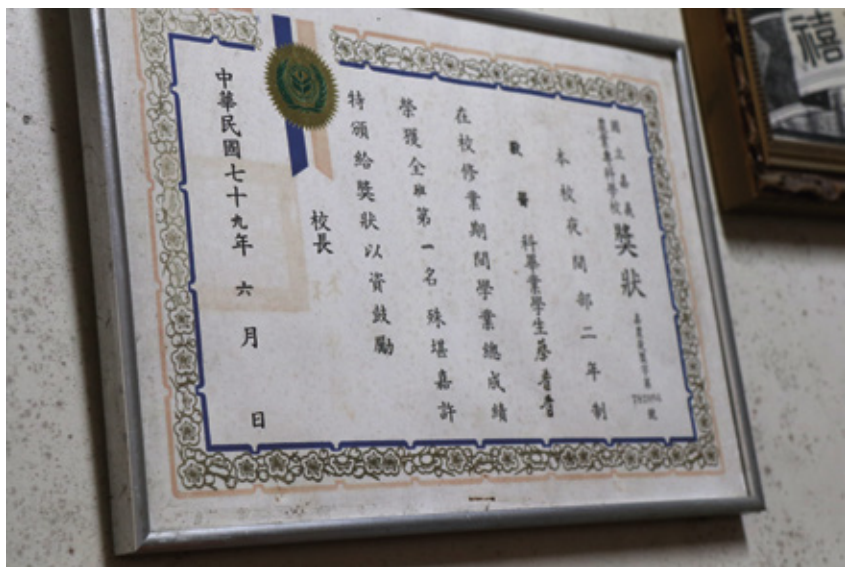 國立嘉義
農業專科學校
獎狀
本校夜間部二年制
獸醫科畢業學生蔡
在校修業期間學業總成績
榮獲全班第一名殊堪嘉許
特頒給獎狀以資鼓勵
校長
中華民國七十九年六月日
禧